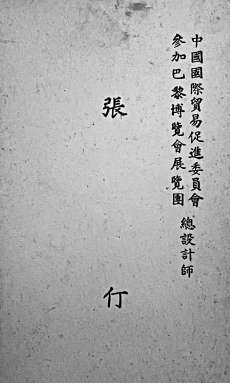 中國國際貿易促進委員會
參加巴黎博覽會展覽團
總設計師
張仃